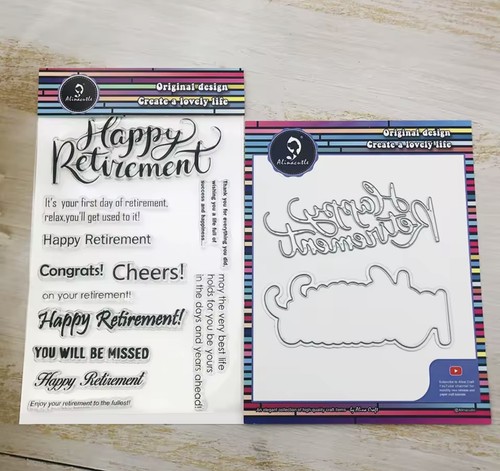 Original design
Create a lovely life
Alinacutle
Happy
Retirement
It's your first day of retirement,
relax,you'll get used to it!
Happy Retirement
Congrats! Cheers!
on your retirement!
Happy Retirement!
YOU WILL BE MISSED
Happy Retirement
Enjoy your retirement to the fullest!
Thank you for everything you did,
wishing you a life full of
success and happiness....
may the very best life
holds for you be yours
in the days and years ahead!
Original design
Create a lovely life
Alinacutle
Happy
Retirement
An elegant collection of high quality craft items
by Alina Craft